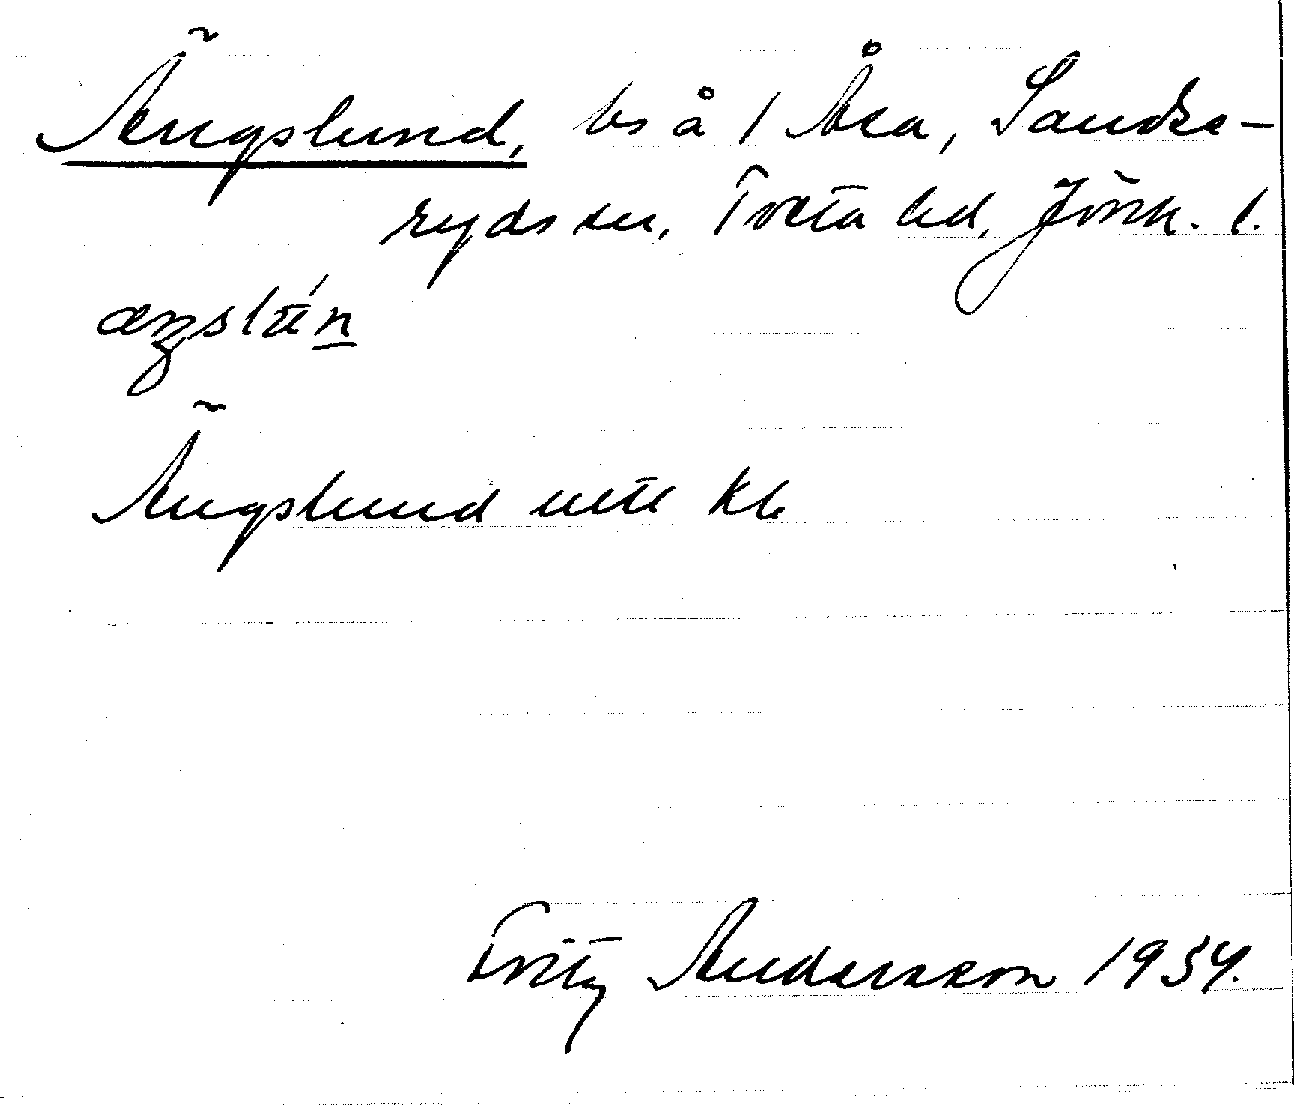 Ängslund, bs å 1 Åsa, Sands-
ryds sn, Tveta hd, Jönk. l.
Ängslund ute kl
Fritz Andersson 1934.